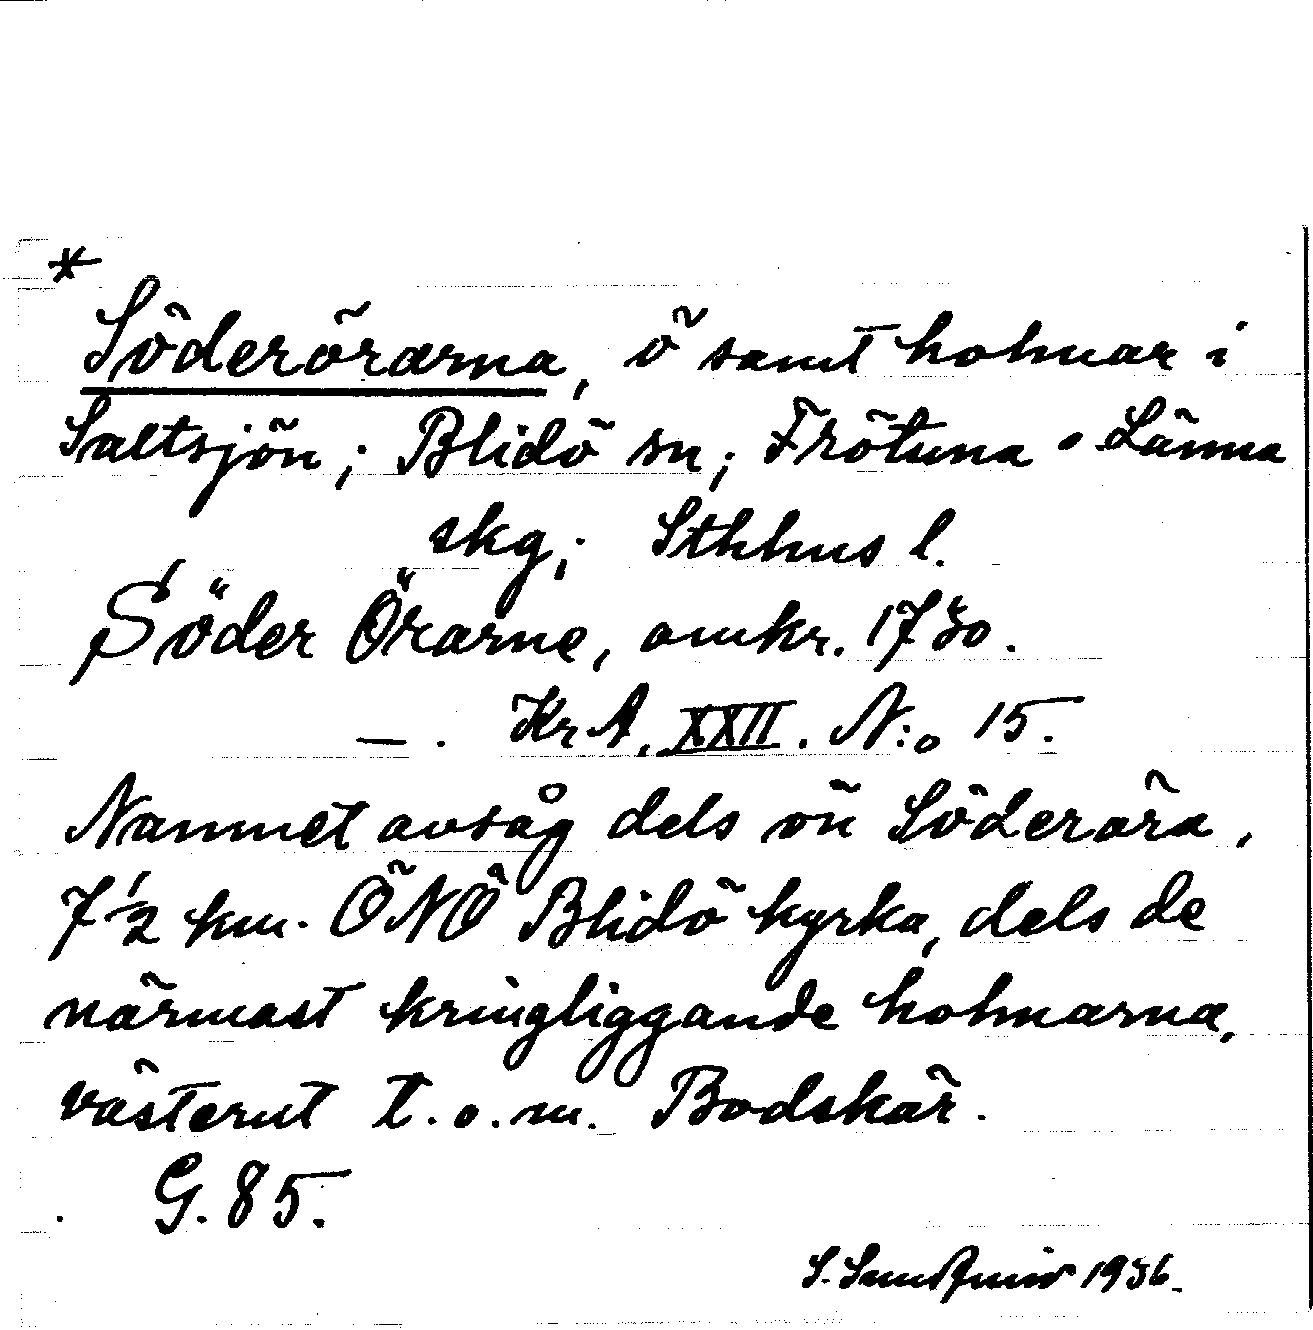 *
Söderörarna, ö samt holmar i
Saltsjön; Blidö sn; Frötuna o Länna
skg; Sthlms l.
Söder Örarne, omkr. 1730.
— . KrA, XXII. N:o 15.
Namnet avsåg dels ön Söderöra,
7 1/2 km. ÖNÖ Blidö kyrka, dels de
närmast kringliggande holmarna,
västerut t.o.m. Bodskär.
G. 85.
S. 1936.